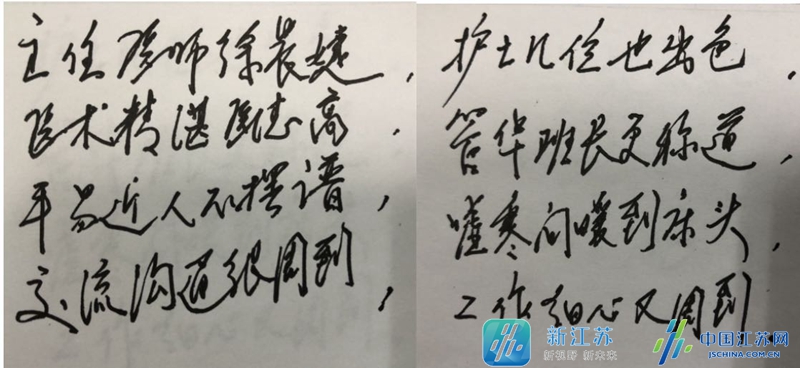 主任医师徐晨婕，
医术精湛医德高，
平易近人不摆谱，
交流沟通很周到，
护士几位也出色，
管华班长更称道，
嘘寒问暖到床头，
工作细心又周到
新江苏
新视野 新未来
中国江苏网
JSCHINA.COM.CN